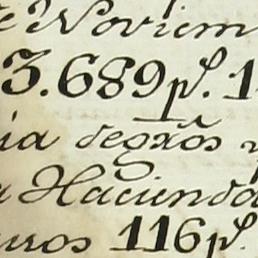 e Noviem
3.689 p.^s 1
ia degx̃os
a Hacienda
uros 116 p.^s